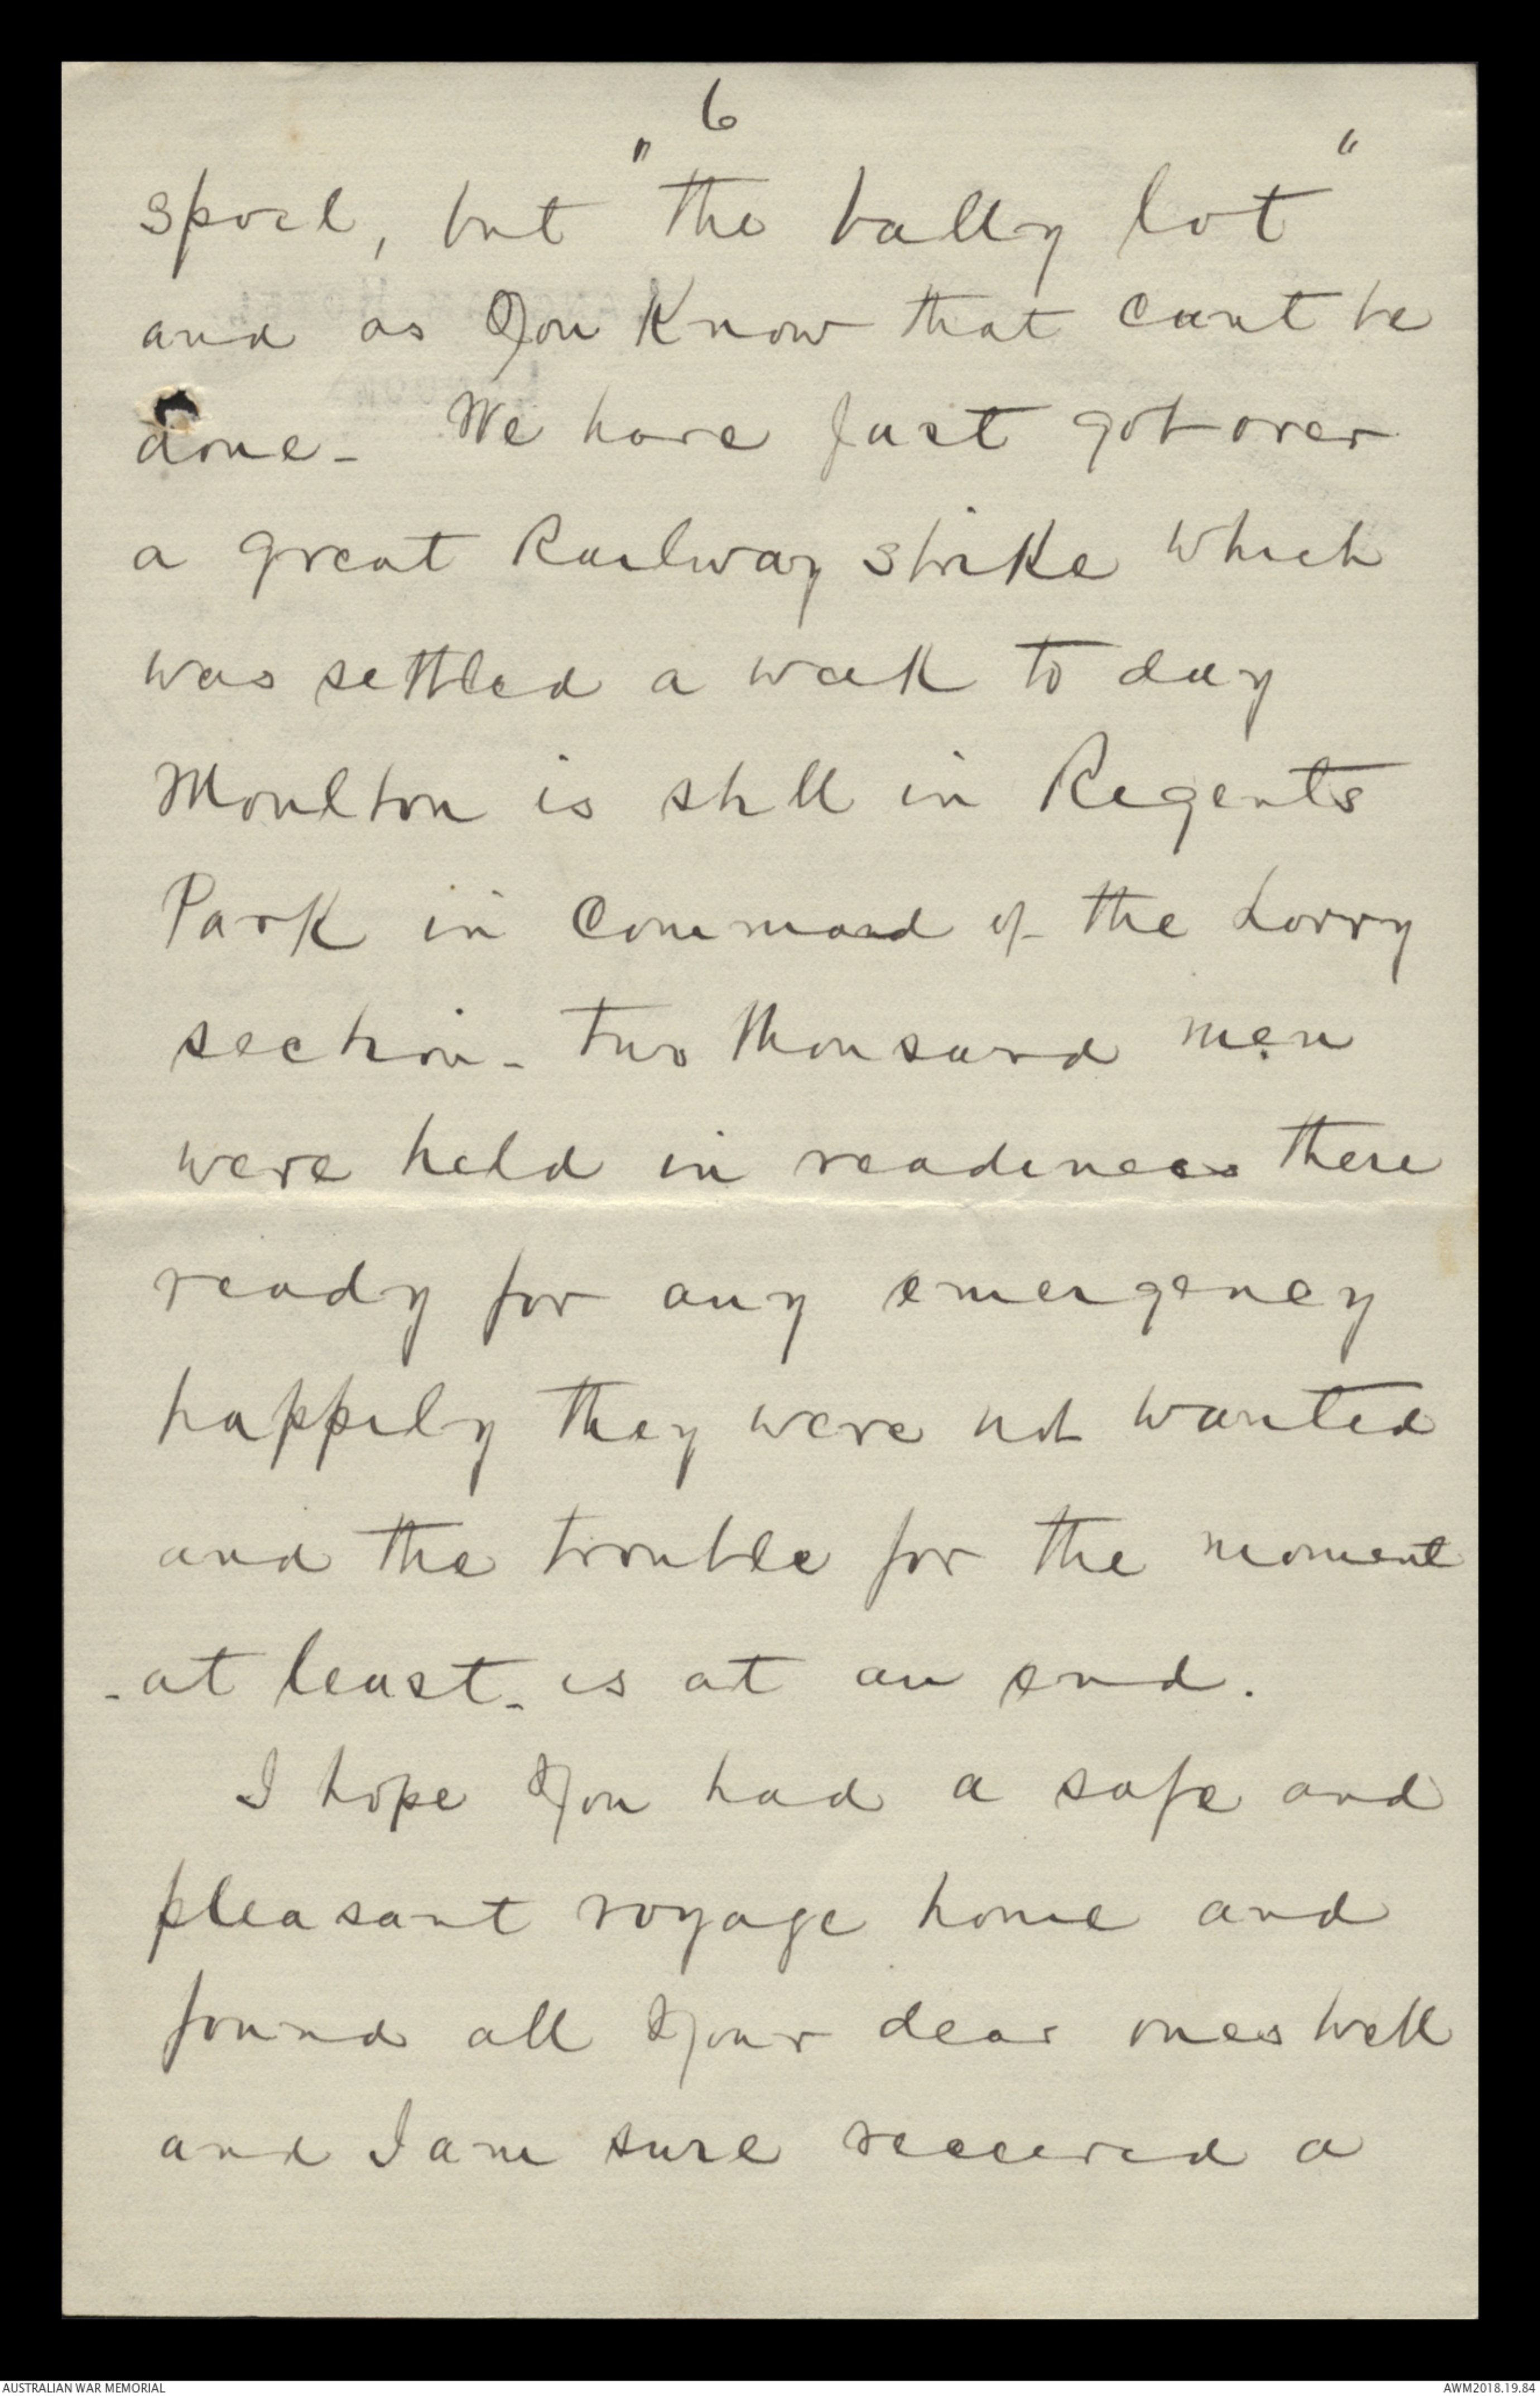 6
spoil, but "the bally lot"
and as you know that cant be
done - We have just got over
a great Railway strike which
was settled a week to day
Moulton is still in Regents
Park in command of the Lorry
section - two thousand men
were held in readiness there
ready for any emergency
happily they were not wanted
and the trouble for the moment
- at least - is at an end.
I hope you had a safe and
pleasant voyage home and
found all your dear ones well
and I am sure received a
AUSTRALIAN WAR MEMORIAL
AWM2018.19.84